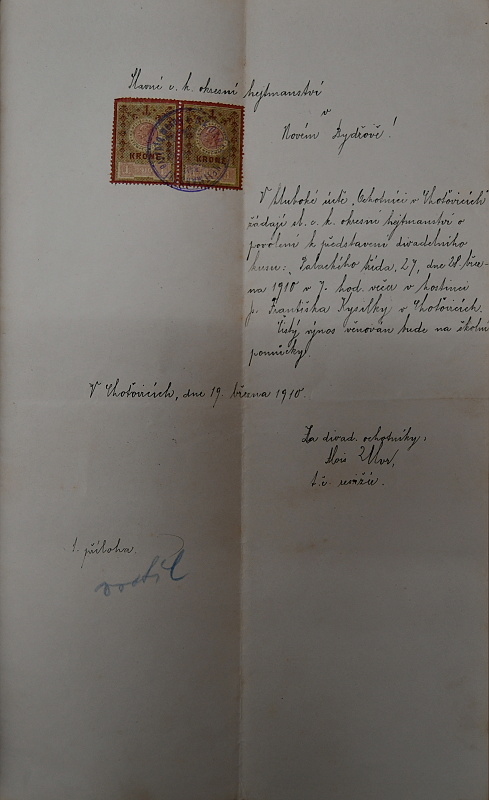 Slavné c. k. okresní hejtmanství
v
Novém Bydžově!
1 1
KRONE KRONE
V hluboké úctě "Ochotníci v Chotovicích"
žádají sl. c. k. okresní hejtmanství o
povolení k představení divadelního
kusu: "Palackého třída, 27, dne 28. břez-
na 1910 v 7. hod. večer v hostinci
p. Františka Kysilky v Chotovicích.
Čistý výnos věnován bude na školní
pomůcky.
V Chotovicích, dne 19. března 1910.
Za divad. ochotníky:
Alois
t. č.
1 příloha.